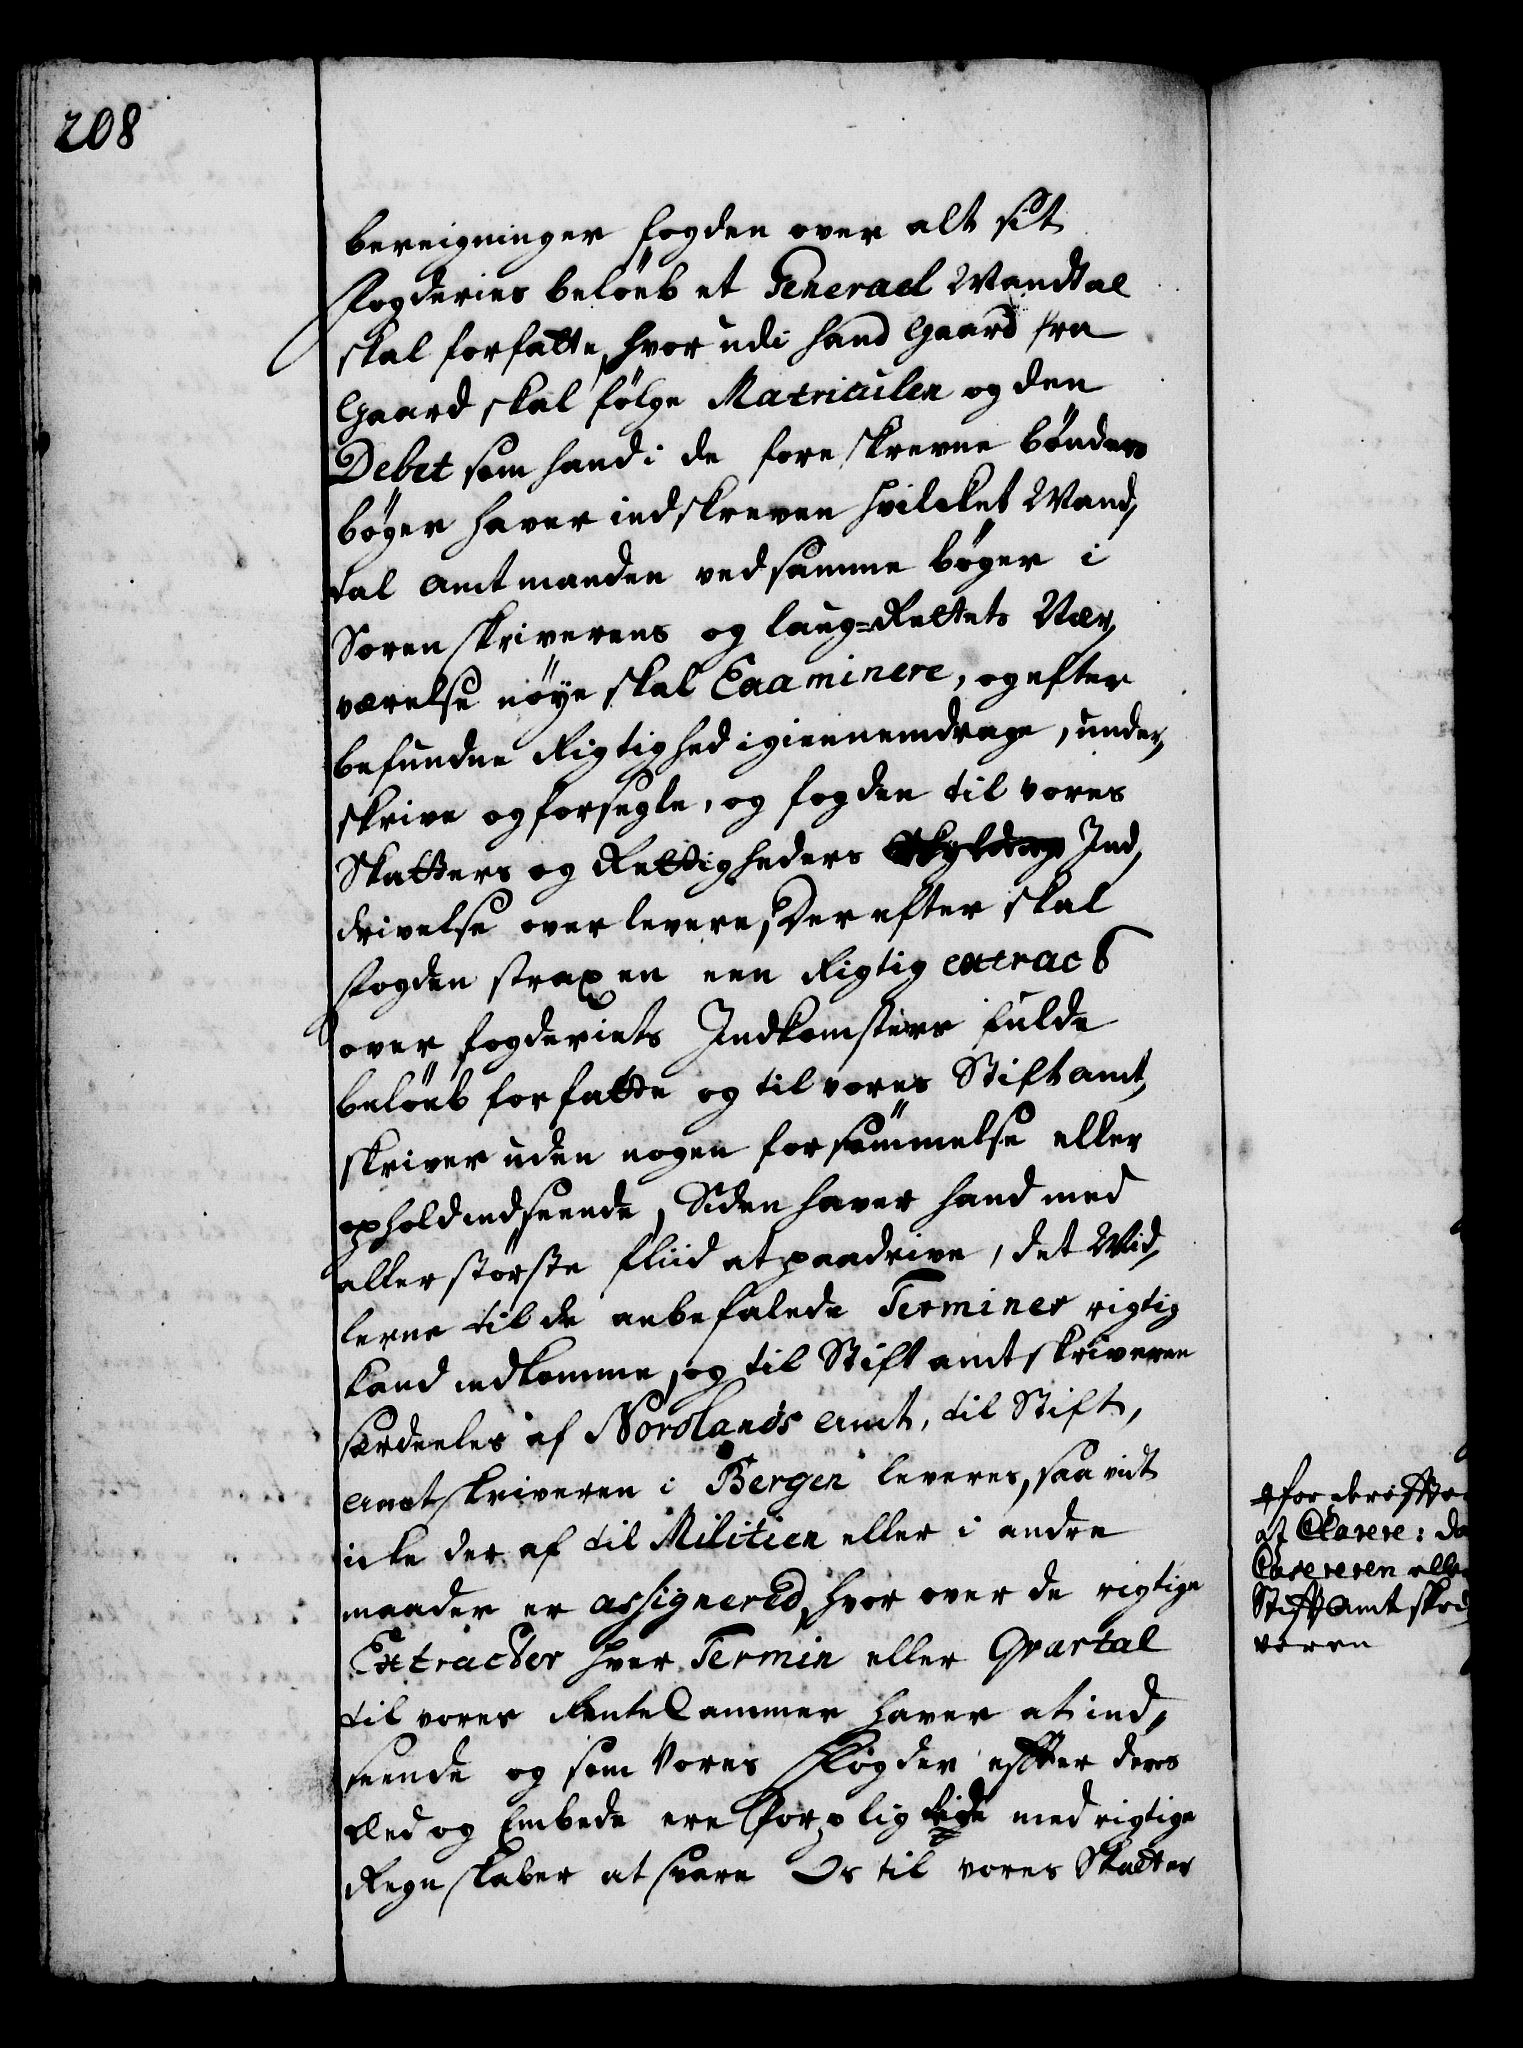 208
bereigninger fogden over alt sit
fogderies beløeb et Generael Mandtal
skal forfatte, hvor udi hand Gaard fra
Gaard skal følge Matriculen og den
Debet som hand i de foreskrevne bønders
bøger haver indskreven hvilcket Mand,
tal Amtmanden ved samme bøger i
Sorenskriverens og laug-Rettets Nær,
værelse nöye skal Examinere, og efter
befundne Rigtighed igiennemdrage, under,
skrive og forsegle, og fogden til vores
Skatters og Rettigheders Ind,
drivelse overlevere, Derefter skal
fogden straxen een Rigtig extract
over fogderiets Indkomsters fulde
beløeb forfatte og til vores Stiftamt,
skriver uden nogen forsömmelse eller
ophold indsende, Siden haver hand med
allerstörste fliid at paadrive, det Mid,
lerne til de anbefalede Terminer rigtig
kand indkomme, og til Stiftamtskriveren
særdeeles af Nordlands Amt, til Stift,
Amtskriveren i Bergen leveres, saavidt
icke der af til Militien eller i andre
maader er assignered, hvor over de rigtige
Extracter hver Termin eller Qvartal
til vores RenteCammer haver at ind,
seende og som Vores fogder effter deres
Eed og Embede ere forpligtede med rigtige
Regnskaber at svare Os til vores Skatter
Casereren elle
Stifft Amtskri
veren